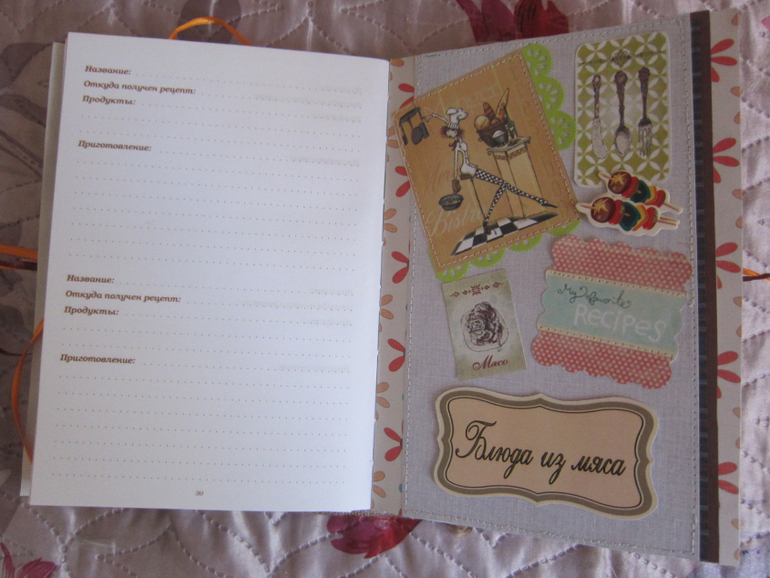 Название:
Откуда получен рецепт:
Продукты:
Приготовление:
Название:
Откуда получен рецепт:
Продукты:
Приготовление:
30
Bistro
My favourite
RECIPES
Мясо
Блюда из мяса